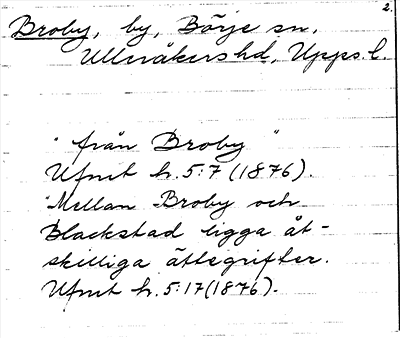 2.
Broby, by, Börje sn,
Ulleråkers hd, Upps. l.
"från Broby"
Ufmt h. 5:7 (1876).
Mellan Broby och
Blackstad ligga åt-
skilliga ättegrifter.
Ufmt h. 5:17 (1876).